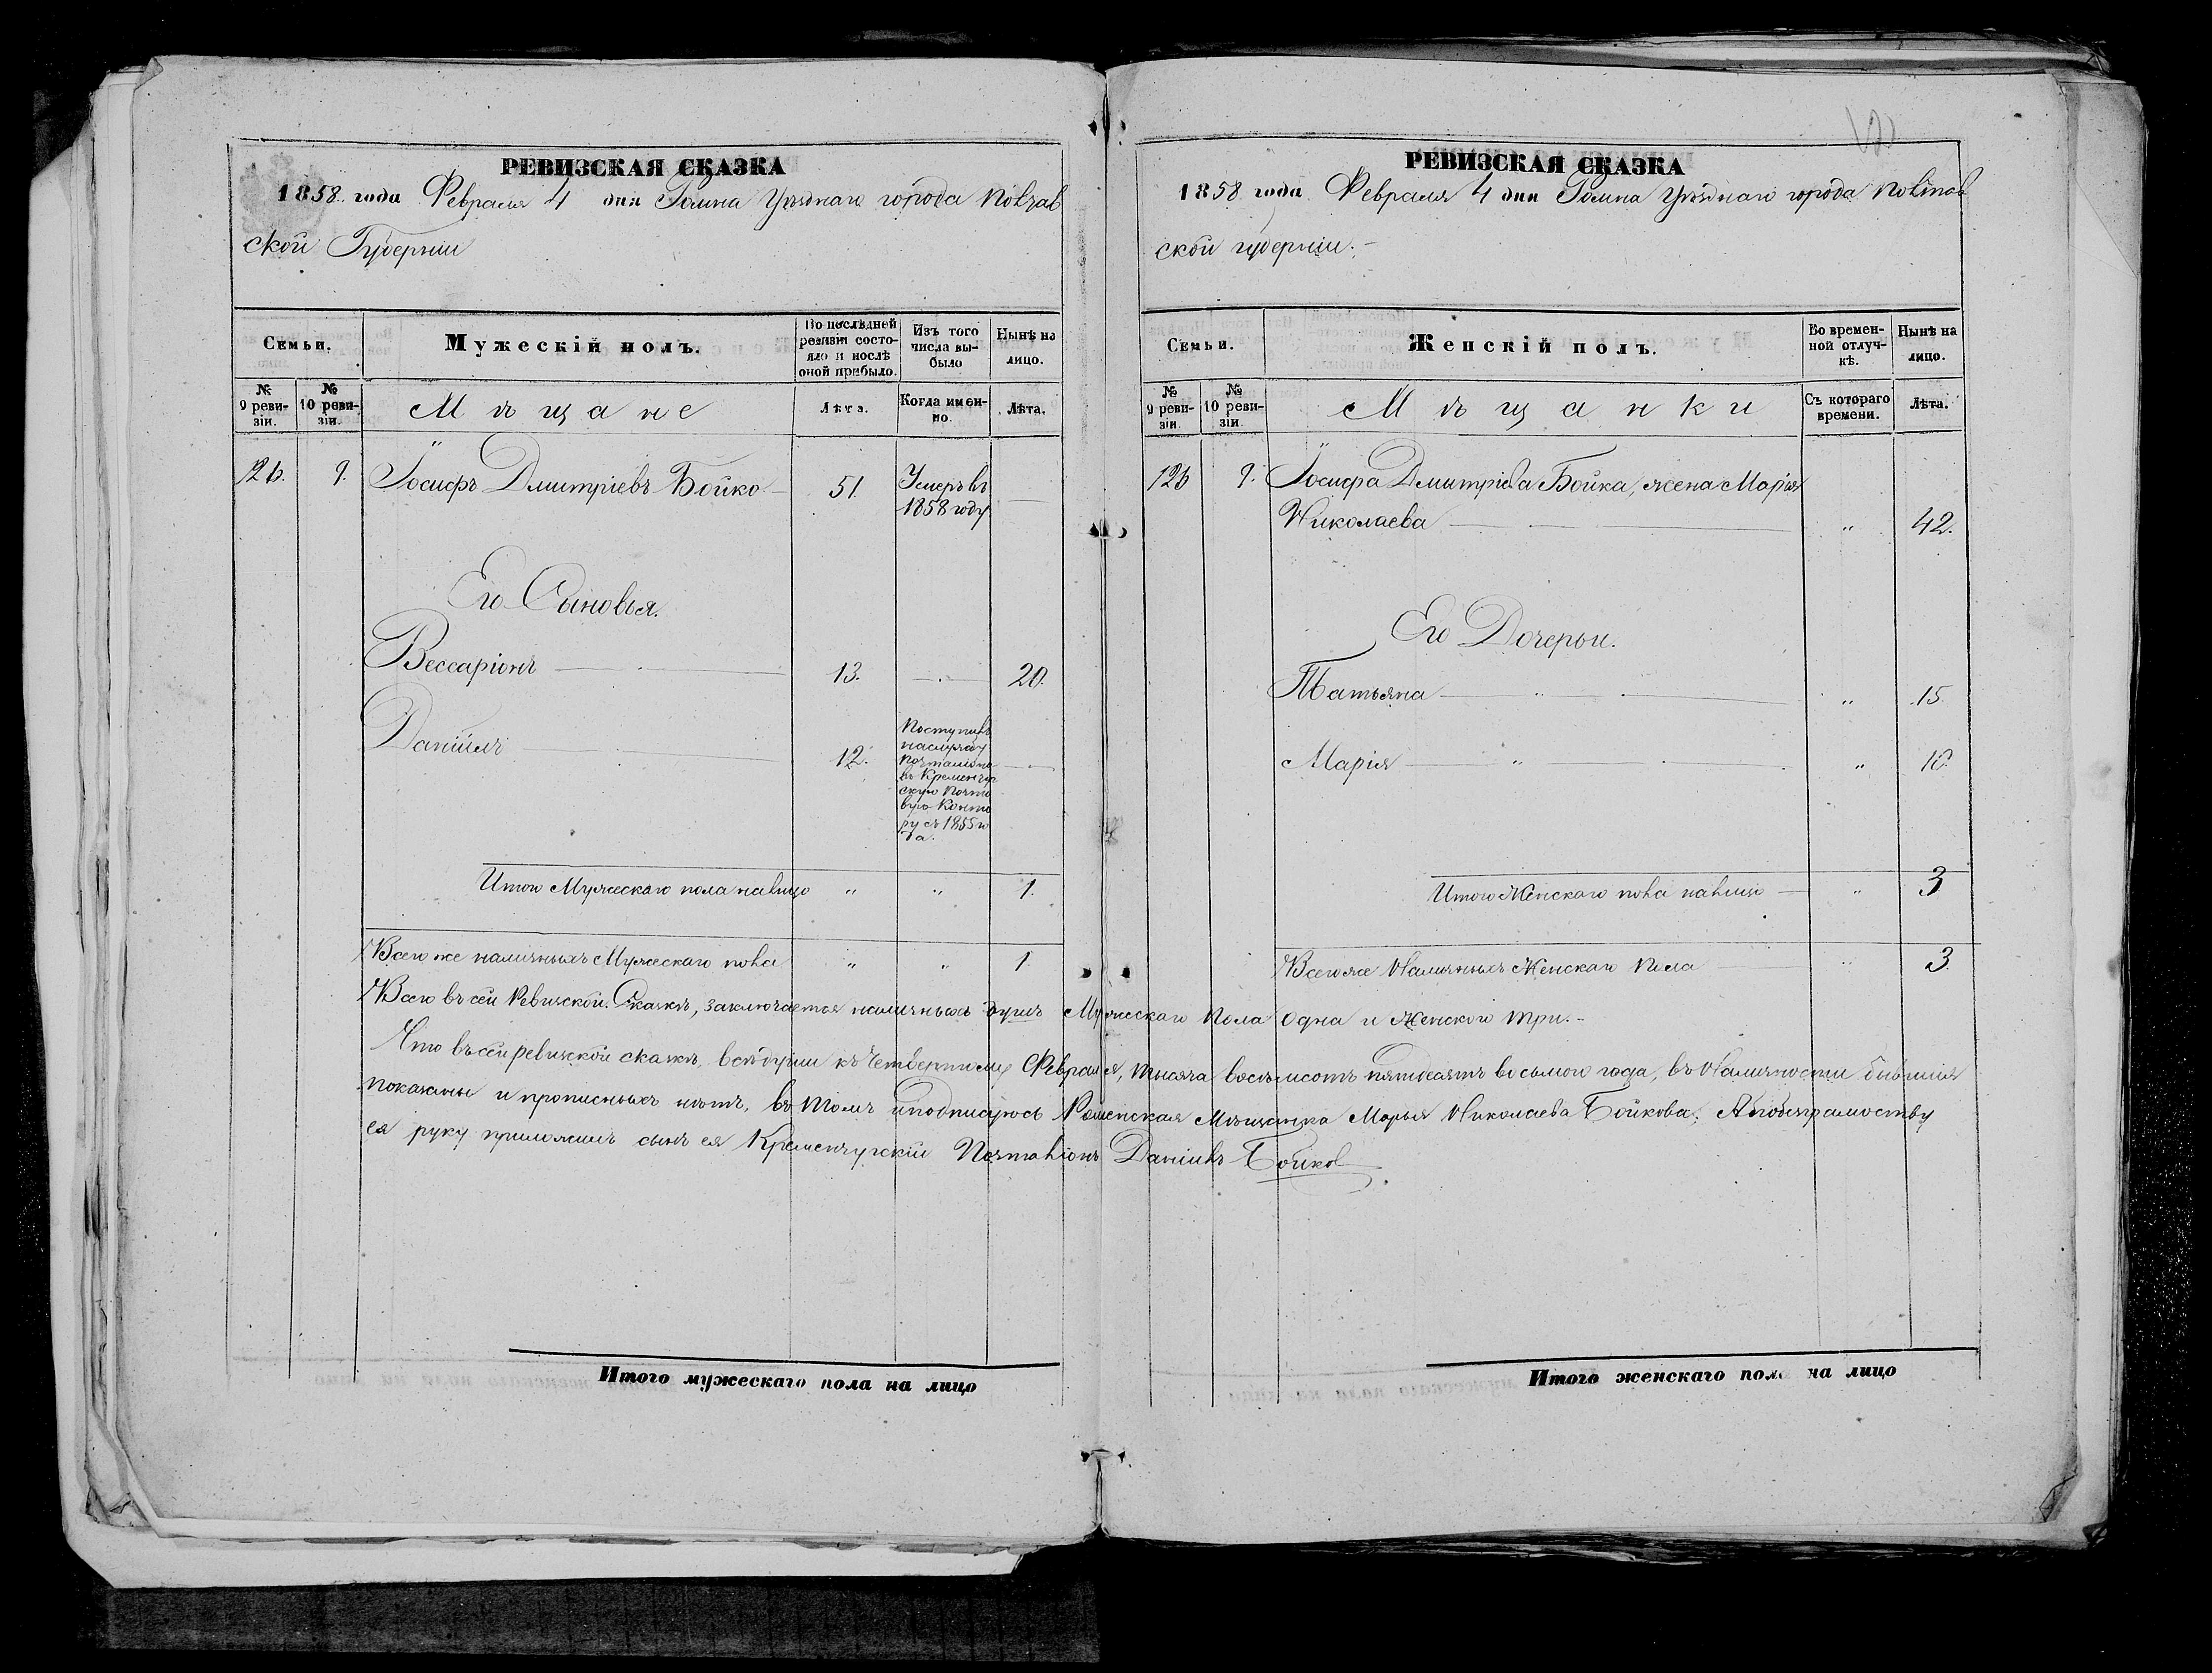 РЕВИЗСКАЯ СКАЗКА
1858 года Февраля 4 дня Ромна Уѣзднаго города Полтав
ской Губерніи
Семьи.
Мужескій полъ.
По послѣдней ревизіи состояло и послѣ оной прибыло.
Изъ того числа выбыло
Нынѣ на лицо.
№ 9 ревизіи.
№ 10 ревизіи.
Мѣщане
Лѣта.
Когда именно.
Лѣта.
126. 9. Іосифъ Дмитріевъ Бойко 51. Умеръ въ
1858 году
Его Сыновья.
Вессаріонъ 13. 20.
Даніилъ 12.
Поступилъ
на службу
Почталіона
въ Кременчуг
скую Почто
вую Конто
ру съ 1855 го
да.
Итого Мужескаго пола налицо " " 1.
Всего же наличныхъ Мужескаго пола " " 1
РЕВИЗСКАЯ СКАЗКА
1858 года Февраля 4 дня Ромна Уѣзднаго города Полтав
ской губерніи.
Семьи.
Женскій полъ.
Во временной отлучкѣ.
Нынѣ на лицо.
№ 9 ревизіи.
№ 10 ревизіи
Мѣщанки
Съ котораго времени.
Лѣта.
126 9. Іосифа Дмитріева Бойка, жена Марія
Николаева " 42.
Его Дочерьи.
Татьяна " 15
Марія " 10.
Итого Женскаго пола налицо " 3
Всего же Наличныхъ Женскаго Пола " 3.
Всего въ сей Ревизской Сказкѣ, заключается наличныхъ душъ Мужескаго Пола одна и Женскаго три.
Что въ сей ревизской сказкѣ, всѣ души къ Четвертому Февраля, тысяча восемьсотъ пятдесятъ восьмого года, въ Наличности бывшія
показаны и прописныхъ нѣтъ, въ томъ и подписуюсь Роменская Мѣщанка Марья Николаева Бойкова, А по безграмотству
ея руку приложилъ сынъ ея Кременчугскій Почталіонъ Даніилъ Бойков
Итого мужескаго пола на лицо
Итого женскаго пола на лицо